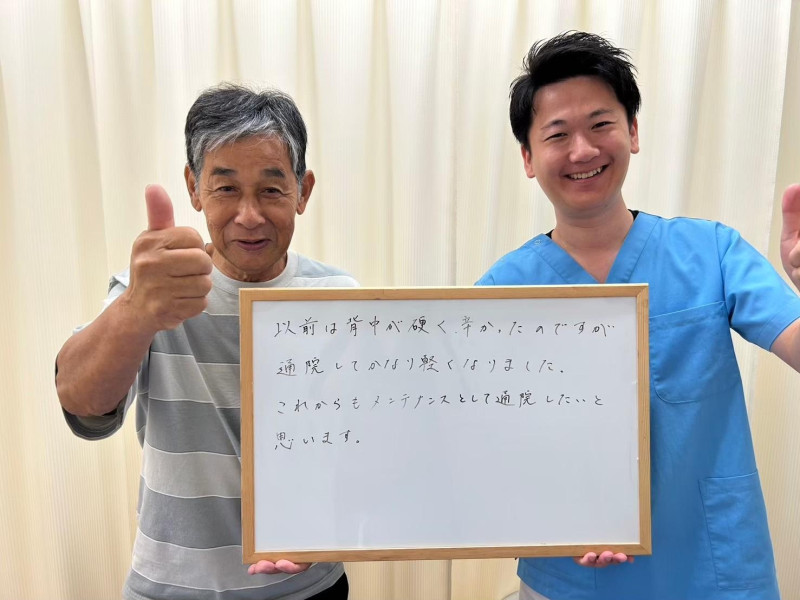 以前は背中が硬く、辛かったのですが
通院してかなり軽くなりました。
これからもメンテナンスとして通院したいと
思います。